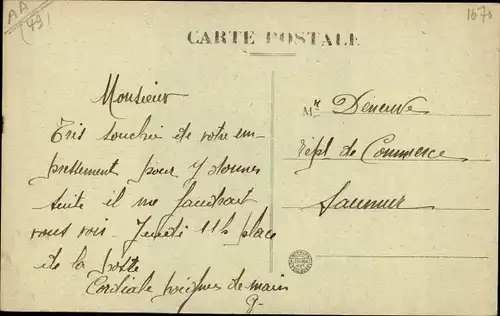 AA
(49)
1670
CARTE POSTALE
Monsieur
Très touchée de votre em-
pressement pour y donner
suite il me faudrait
vous voir. Jeudi 11h place
de la poste
Cordiale poignée de main
g.
Mr Deneuve
rept de Commerce
Saumur